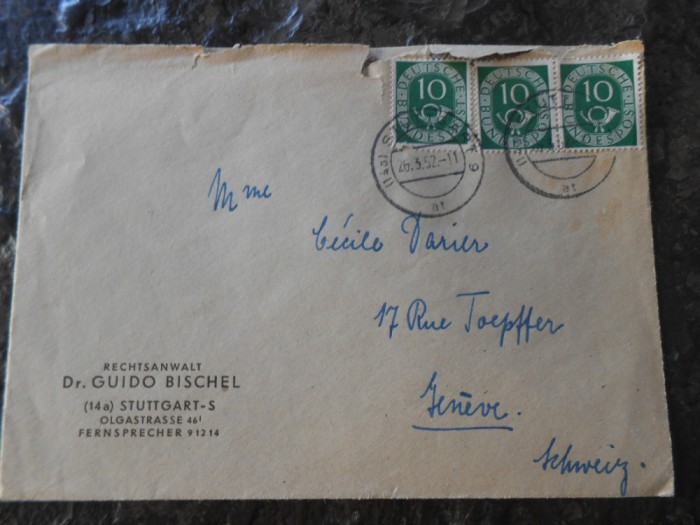 10 DEUTSCHE BUNDESPOST
10 DEUTSCHE BUNDESPOST
10 DEUTSCHE BUNDESPOST
(14a) S
26.3.52.-11
at
at
Mme
Cécile Darier
17 Rue Toepffer
Genève.
Schweiz.
RECHTSANWALT
Dr. GUIDO BISCHEL
(14a) STUTTGART-S
OLGASTRASSE 46I
FERNSPRECHER 91214